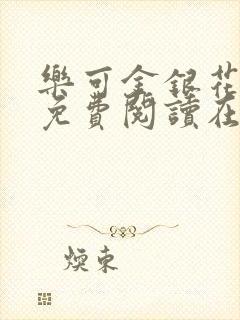 樂可金銀花
免費閱讀在
煐東